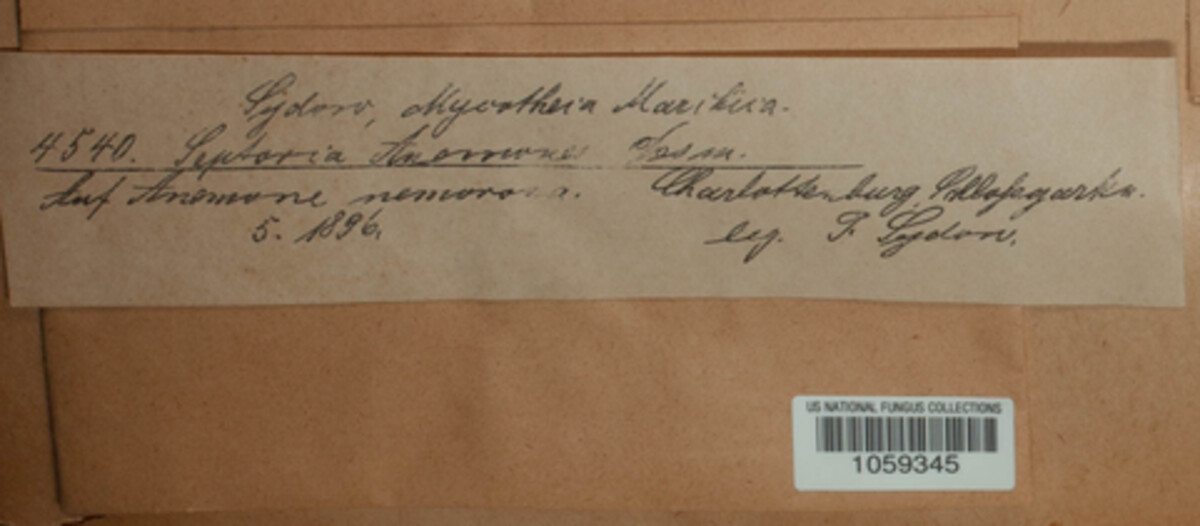 Sydow, Mycotheca Marchica.
4540. Septoria Anemones Desm.
Auf Anemone nemorosa. Charlottenburg, Schloßgarten.
5. 1896. leg. P. Sydow.
US NATIONAL FUNGUS COLLECTIONS
1059345